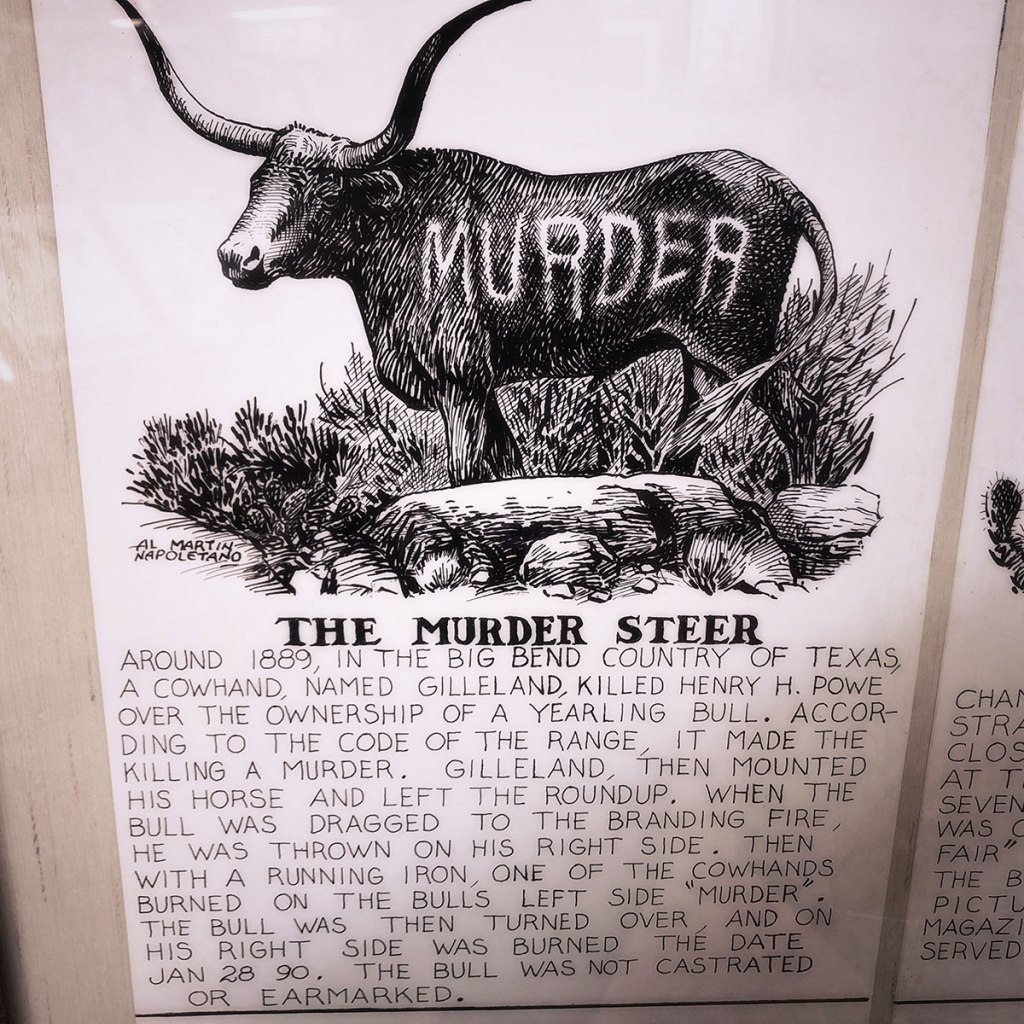 MURDER
AL MARTIN
NAPOLETANO
THE MURDER STEER
AROUND 1889, IN THE BIG BEND COUNTRY OF TEXAS,
A COWHAND, NAMED GILLELAND, KILLED HENRY H. POWE
OVER THE OWNERSHIP OF A YEARLING BULL. ACCOR-
DING TO THE CODE OF THE RANGE, IT MADE THE
KILLING A MURDER. GILLELAND, THEN MOUNTED
HIS HORSE AND LEFT THE ROUNDUP. WHEN THE
BULL WAS DRAGGED TO THE BRANDING FIRE,
HE WAS THROWN ON HIS RIGHT SIDE. THEN
WITH A RUNNING IRON, ONE OF THE COWHANDS
BURNED ON THE BULLS LEFT SIDE "MURDER".
THE BULL WAS THEN TURNED OVER, AND ON
HIS RIGHT SIDE WAS BURNED THE DATE
JAN 28 90. THE BULL WAS NOT CASTRATED
OR EARMARKED.
CHAN
STRA
CLOS
AT T
SEVEN
WAS
FAIR"
THE B
PICTU
MAGAZI
SERVED